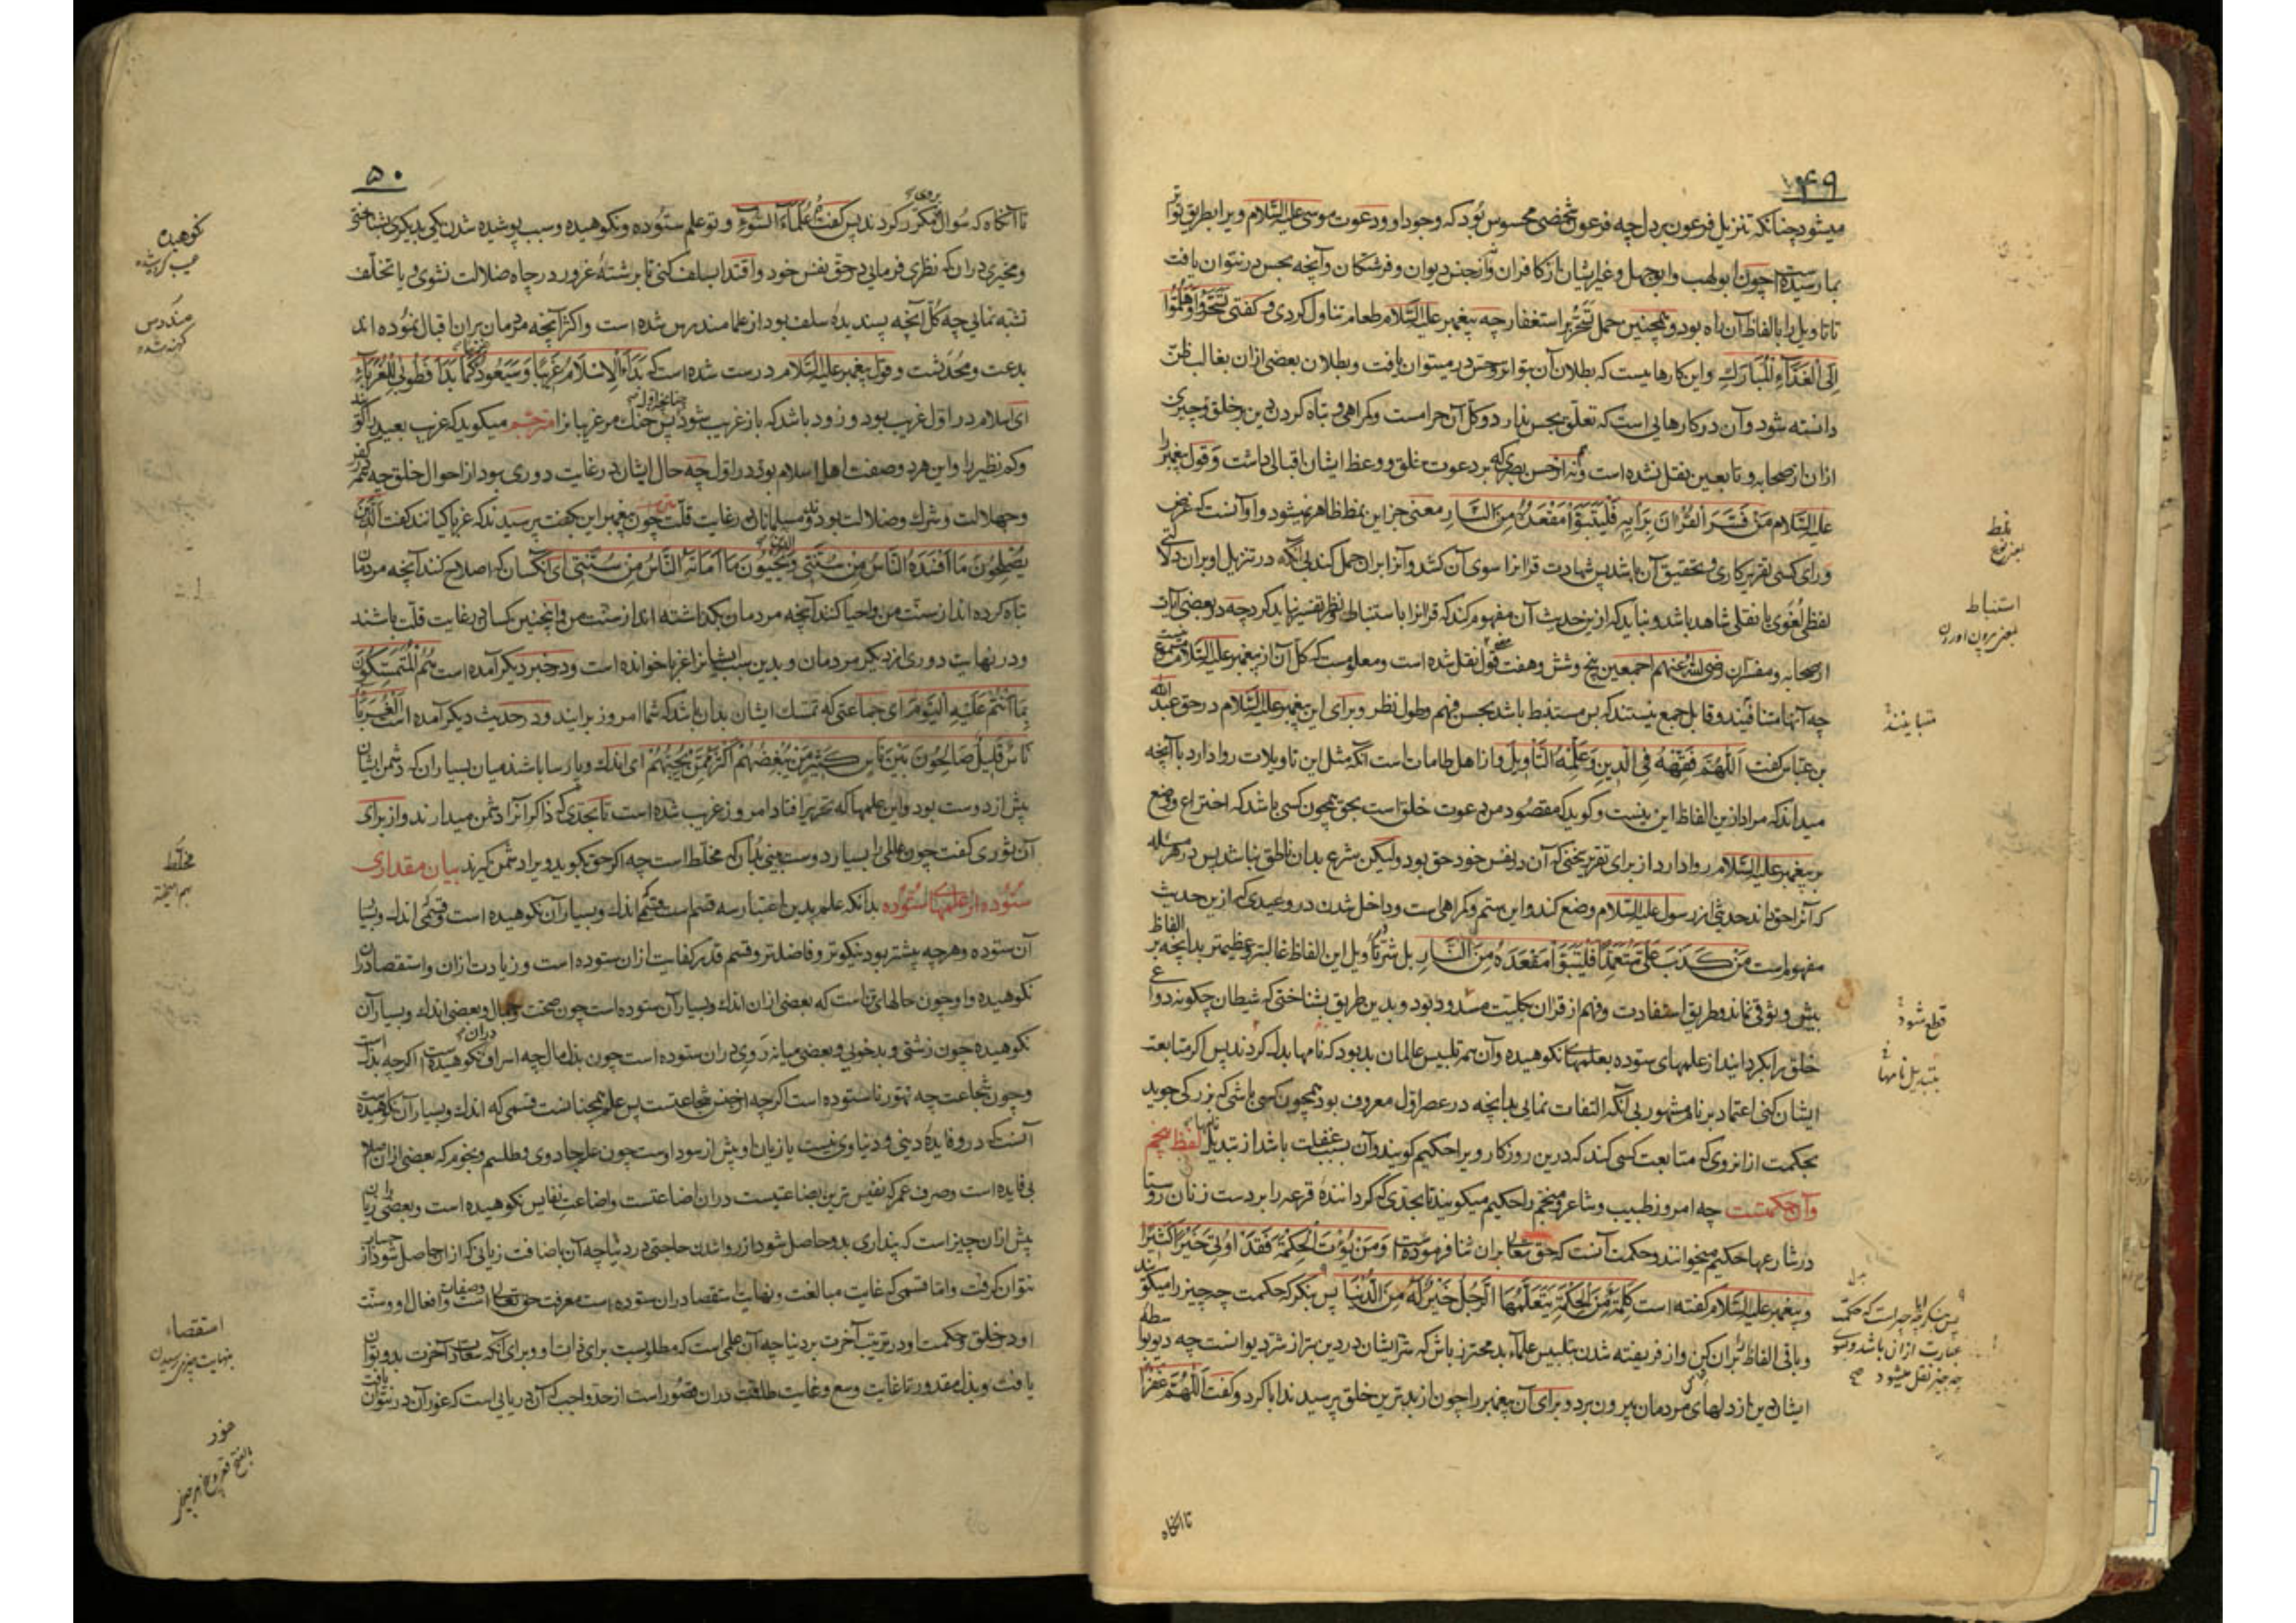 ۴۹
میشود چنانکه تنزیل فرعون بر دل چه فرعون شخصی محسوس بود که وجود او و دعوت موسی علیه السلام ویرا بطریق تواتر
بما رسیده است چون ابو لهب و ابو جهل و غیر ایشان از کافران و نه از جنس دیوان و فرشتگان و آنچه بحس در نتوان یافت
تا تاویل را بالفاظ آن راه بود و همچنین حمل تسحر بر استغفار چه پیغمبر علیه السلام طعام تناول کردی و گفتی تسحروا و هلموا
الی الغداء المبارک و این کارهایست که بطلان آن بتواتر و حس در میتوان یافت و بطلان بعضی از ان بغالب ظن
دانسته شود و آن در کارهایی است که تعلق بحس ندارد و کل آن حرامست و گمراهی و تباه کردن دین بر خلق و چیزی
ازان از صحابه و تابعین نقل نشده است و نه از حسن بصری که بر دعوت خلق و وعظ ایشان اقبالی داشت و قول پیغمبر را
علیه السلام من فسر القرآن برأیه فلیتبوأ مقعده من النار معنی جز این نمط ظاهر نمیشود و او آنست که غرض
و رای کسی تقریر کاری و تحقیق آن باشد پس شهادت قرانرا سوی آن کشد و آنرا بران حمل کند بی آنکه در تنزیل او بران دلالتی
لفظی لغوی یا نقلی شاهد باشد و نباید که ازین حدیث آن مفهوم کند که قرانرا باستنباط و نظر تفسیر نباید کرد چه در بعضی آیات
از صحابه و مفسران رضی الله عنهم اجمعین پنج و شش و هفت قول نقل شده است و معلومست که کل آن از پیغمبر علیه السلام مسموع نیست
چه آنها متنافیند و قابل جمع نیستند که پس مستنبط باشد بحسن فهم و طول نظر و برای این پیغمبر علیه السلام در حق عبد الله
بن عباس گفت اللهم فقهه فی الدین و علمه التأویل و از اهل طامات است آنکه مثل این تاویلات روا دارد با آنچه
میداند که مراد ازین الفاظ این نیست و گوید که مقصود من دعوت خلق است بحق همچون کسی باشد که اختراع و وضع
بر پیغمبر علیه السلام روا دارد از برای تقریر سخنی که آن در نفس خود حق بود ولیکن شرع بدان ناطق نباشد پس در هر مسئله
که آنرا حق داند حدیثی از رسول علیه السلام وضع کند و این ستم و گمراهی است و داخل شدن در وعیدی که ازین حدیث
مفهوم است من کذب علی متعمدا فلیتبوأ مقعده من النار بل شر تأویل این الفاظ غالبتر و عظیمتر بدانچه بر الفاظ
بیش وثوقی نماند و طریق استفادت و فهم از قران بکلیت مسدود بود و بدین طریق بشناختی که شیطان چگونه دواعی
خلق را بگردانید از علمهای ستوده بعلمهای نکوهیده و آن هم تلبیس عالمان بد بود که نامها بدل کردند پس اگر متابعت
ایشان کنی اعتماد بر نام مشهور بی آنکه التفات نمایی بدانچه در عصر اول معروف بود همچون کسی باشی که بزرگی جوید
بحکمت از انروی که متابعت کسی کند که درین روزگار ویرا حکیم گویند و آن بسبب غفلت باشد از تبدیل نامها لفظ پنجم
وآن حکمتست چه امروز طبیب و شاعر و منجم را حکیم میگویند تا بحدی که گرداننده قرعه را بر دست زنان روستا
در شارعها حکیم میخوانند و حکمت آنست که حق تعالی بران ثنا فرموده است و من یؤت الحکمة فقد اوتی خیرا کثیرا
و پیغمبر علیه السلام گفته است کلمة من الحکمة یتعلمها الرجل خیر له من الدنیا پس بنگر که حکمت چه چیز را میگویند
و باقی الفاظ بران کن و از فریفته شدن بتلبیس علماء بد محترز باش که شر ایشان در دین بتر از شر دیوانست چه دیو بواسطهٔ
ایشان دین از دلهای مردمان بیرون برد و برای آن پیغمبر را چون از بدترین خلق پرسیدند ابا کرد و گفت اللهم غفرا
نمط
استنباط
بمعنی بیرون آوردن
متباینند
قطع شود
بتبدیل نامها
تا آنگاه
۵۰
تا آنگاه که سوال مکرر کردند پس گفت هم علماء السوء و تو علم ستوده و نکوهیده و سبب پوشیده شدن یکی بدیگری بشناختی
و مخیری دران که نظری فرمایی در حق نفس خود و اقتدا بسلف کنی تا برشتهٔ غرور در چاه ضلالت نشوی و یا تخلف
تشبه نمایی چه کل آنچه پسندیدهٔ سلف بود از علما مندرس شده است و اکثر آنچه مردمان بران اقبال نموده اند
بدعت و محدثست و قول پیغمبر علیه السلام درست شده است که بدأ الاسلام غریبا و سیعود غریبا کما بدأ فطوبی للغرباء
ای اسلام در اول غریب بود و زود باشد که باز غریب شود چنانچه اول پس خنک مر غریبانرا مترجم میگوید که غریب بعید را گویند
و کم نظیر را و این هر دو صفت اهل اسلام بود در اول چه حال ایشان در غایت دوری بود از احوال خلق چه همه کفر
و جهالت و شرک و ضلالت بود و مسلمانان در غایت قلت چون پیغمبر این بگفت پرسیدند که غربا کیانند گفت الذین
یصلحون ما افسده الناس من سنتی و الذین یحیون ما اماته الناس من سنتی ای آنکسان که اصلاح کنند آنچه مردمان
تباه کرده اند از سنت من و احیا کنند آنچه مردمان بگذاشته اند از سنت من و اینچنین کسان در غایت قلت باشند
و در نهایت دوری از دیگر مردمان و بدین سبب ایشانرا غربا خوانده است و در خبر دیگر آمده است هم المتمسکون
بما انتم علیه الیوم ای جماعتی که تمسک ایشان بدان باشد که شما امروز برانید و در حدیث دیگر آمده است الغرباء
ناس قلیل صالحون بین ناس کثیر من یبغضهم اکثر ممن یحبهم ای اندک و پارسا باشند میان بسیاران که دشمن ایشان
بیش از دوست بود و این علمها که تحریر افتاد امروز غریب شده است تا بحدی که ذاکر آنرا دشمن میدارند و از برای
آن ثوری گفت چون عالمی را بسیار دوست بینی بدان که مخلط است چه اگر حق بگوید ویرا دشمن گیرند بیان مقداری
ستوده از علمهای ستوده بدانکه علم بدین اعتبار سه قسم است قسمی اندک و بسیار آن نکوهیده است و قسمی اندک و بسیار
آن ستوده و هرچه بیشتر بود نیکوتر و فاضلتر و قسم قدر کفایت ازان ستوده است و زیادت ازان و استقصا دران
نکوهیده و او چون حالهای تن است که بعضی ازان اندک و بسیار آن ستوده است چون صحت و جمال و بعضی اندک و بسیار آن
نکوهیده چون زشتی و بدخویی و بعضی میانه روی دران ستوده است چون بذل مال چه اسراف دران نکوهیده است اگرچه بذل است
و چون شجاعت چه تهور ناستوده است اگرچه از جنس شجاعتست پس علم همچنانست قسمی که اندک و بسیار آن نکوهیده
آنست که درو فایدهٔ دینی و دنیاوی نیست یا زیان او بیش از سود اوست چون علم جادوی و طلسم و نجوم که بعضی ازان اصلا
بی فایده است و صرف عمر که نفیس ترین بضاعتیست دران اضاعتست و اضاعت نفایس نکوهیده است و بعضی را زیان
بیش ازان چیز است که پنداری بدو حاصل شود از روا شدن حاجتی در دنیا چه آن باضافت زیانی که ازان حاصل شود از حساب
نتوان گرفت و اما قسمی که غایت مبالغت و نهایت استقصا دران ستوده است معرفت حق تعالی است و صفات و افعال او و سنت
او در خلق و حکمت او در ترتیب آخرت بر دنیا چه آن علمی است که مطلوبست برای ذات او و برای آنکه سعادت آخرت بدو توان
یافت و بذل مقدور تا غایت وسع و غایت طاقت دران قصور است از حد واجب که آن دریایی است که غور آن در نتوان یافت
نکوهیده
عیب کرده شده
مندرس
کهنه شده
مخلط
استقصاء
بنهایت چیزی رسیدن
غور